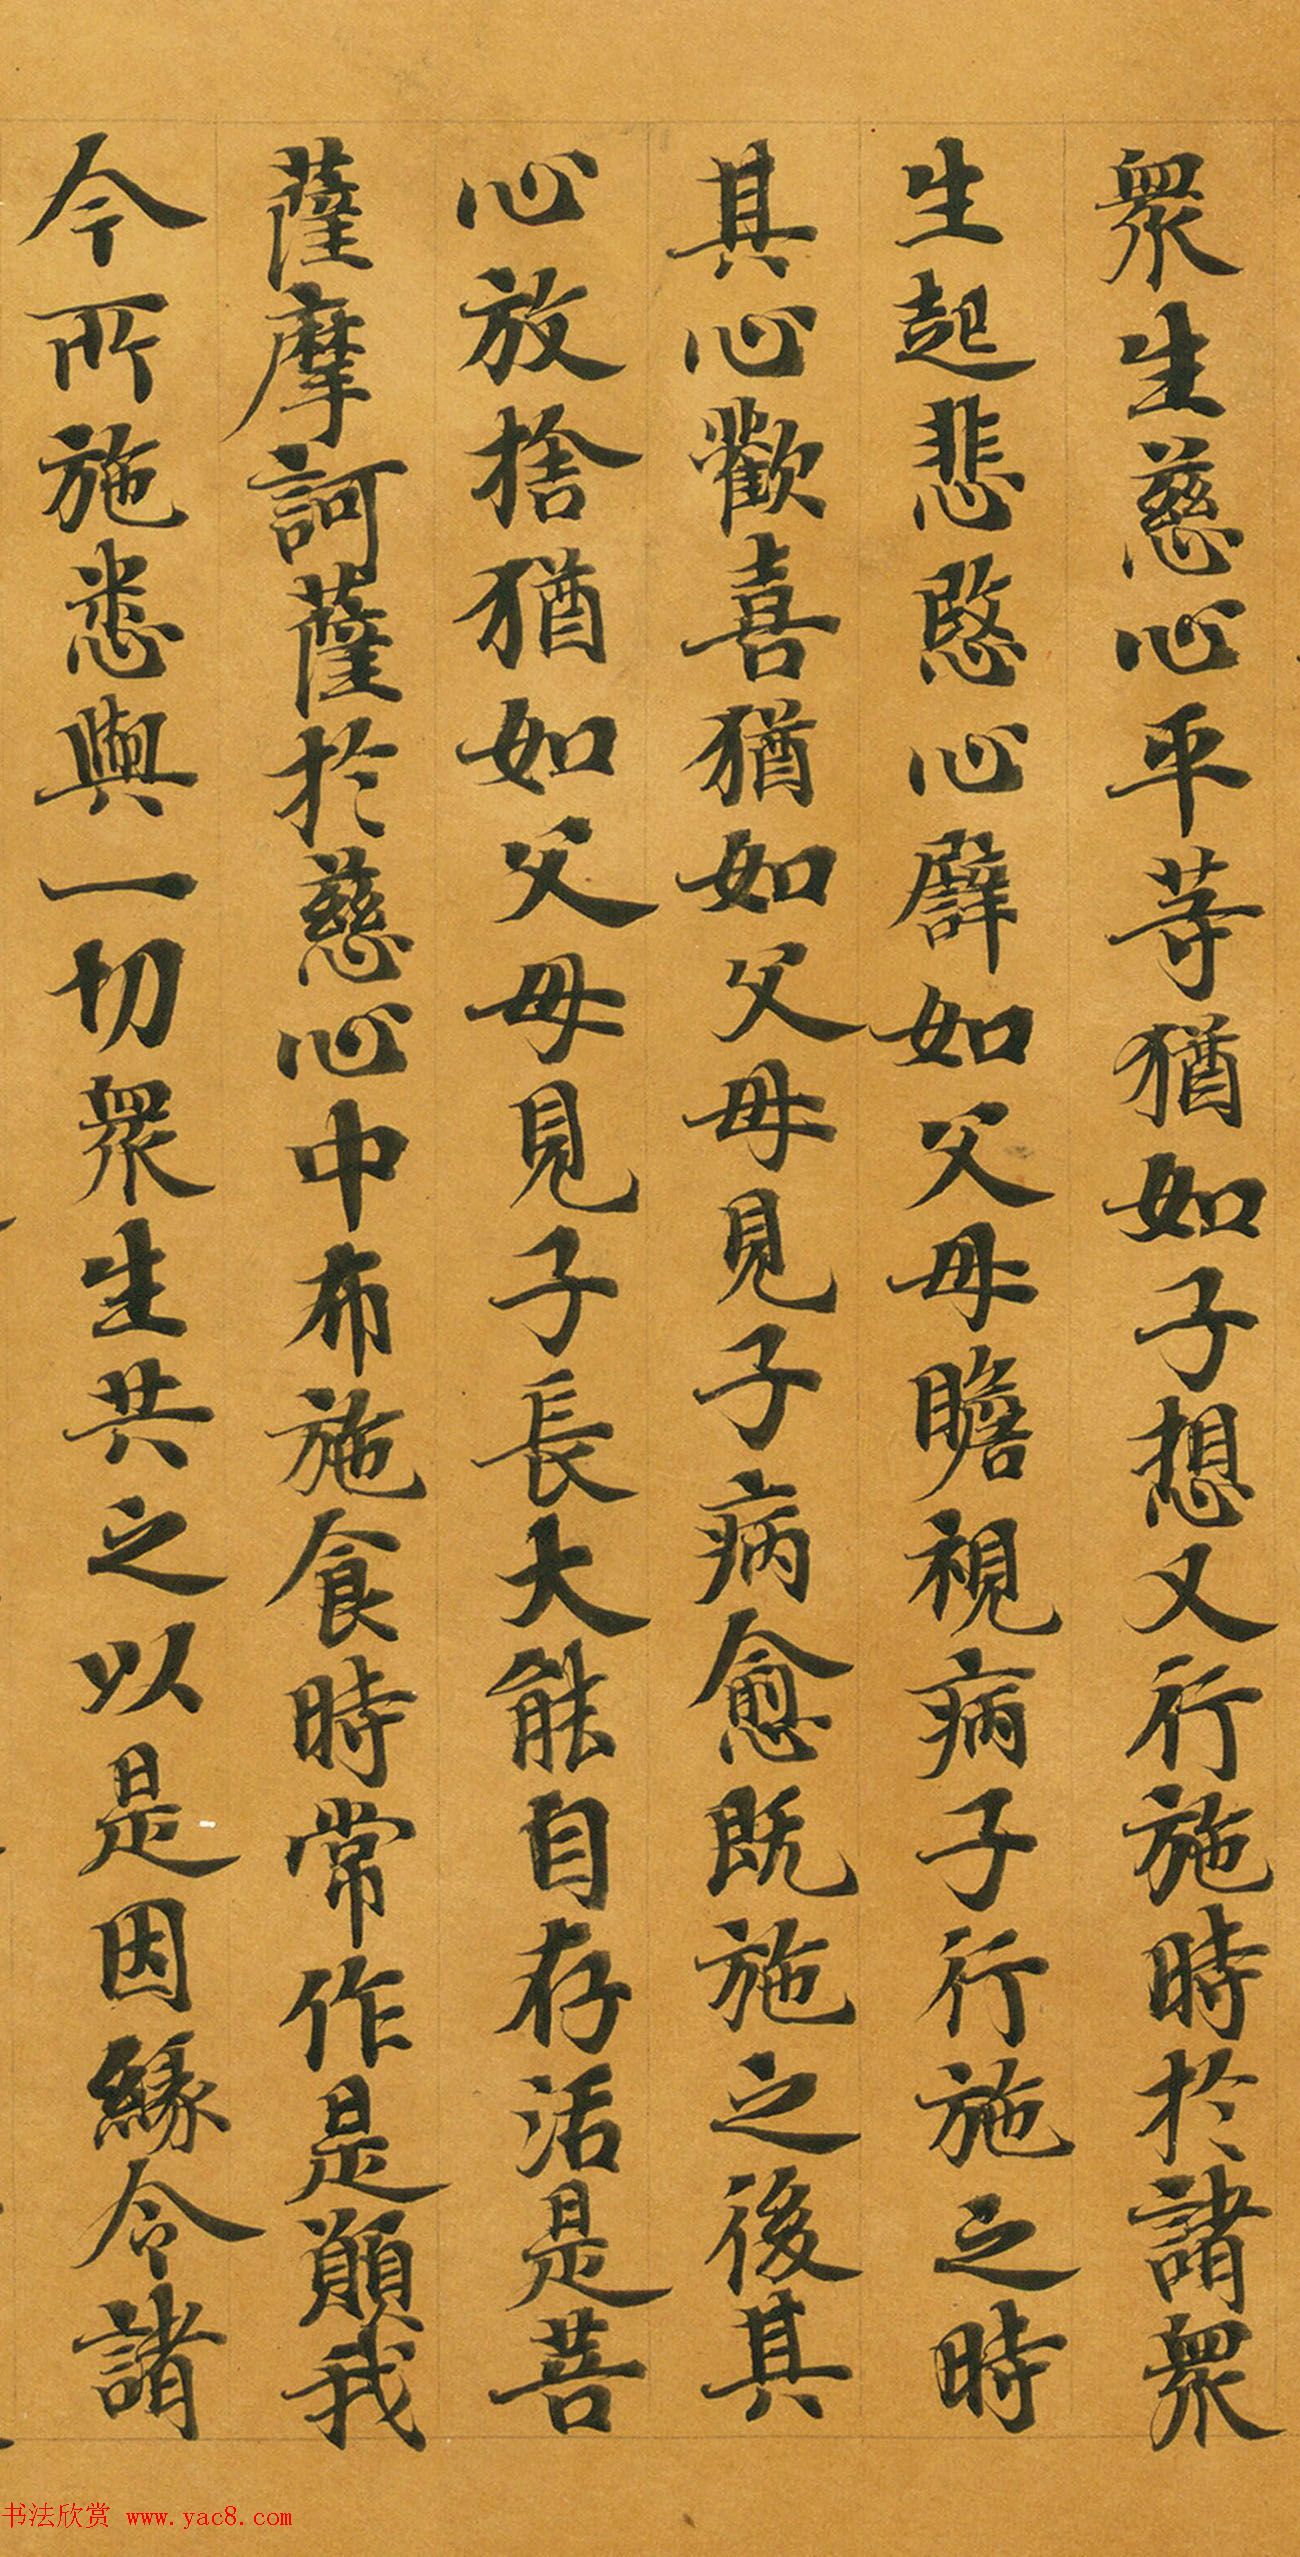 衆生慈心平等猶如子想又行施時於諸衆
生起悲愍心譬如父母瞻視病子行施之時
其心歡喜猶如父母見子病愈既施之後其
心放捨猶如父母見子長大能自存活是菩
薩摩訶薩於慈心中布施食時常作是願我
今所施悉與一切衆生共之以是因緣令諸
书法欣赏 www.yac8.com